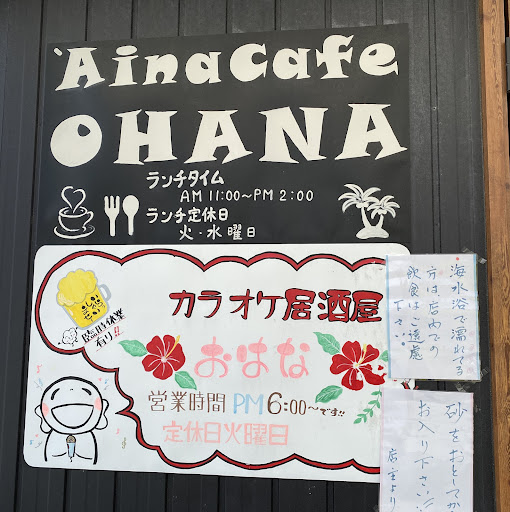 'AinaCafe
OHANA
ランチタイム
AM 11:00~PM 2:00
ランチ定休日
火・水曜日
カラオケ居酒屋
臨時休業
有り!!
おはな
営業時間 PM6:00~です!!
定休日火曜日
海水浴で濡れてる
方は店内での
飲食はご遠慮
下さい
砂をおとしてか
お入り下さい!!
店主より